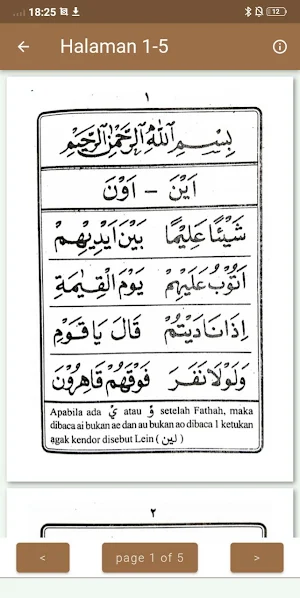 18:25
12
Halaman 1-5
١
بِسْمِ اللهِ الرَّحْمٰنِ الرَّحِيْمِ
اَيْنَ - اَوْنَ
شَيْئًا عَلِيْمًا بَيْنَ اَيْدِيْهِمْ
اَتُوْبُ عَلَيْهِمْ يَوْمَ الْقِيٰمَةِ
اِذَا نَادَيْتُمْ قَالَ يَا قَوْمِ
وَلَوْلَا نَفَرَ فَوْقَهُمْ قَاهِرُوْنَ
Apabila ada يْ atau وْ setelah Fathah, maka
dibaca ai bukan ae dan au bukan ao dibaca 1 ketukan
agak kendor disebut Lein ( لين )
٢
<
page 1 of 5
>